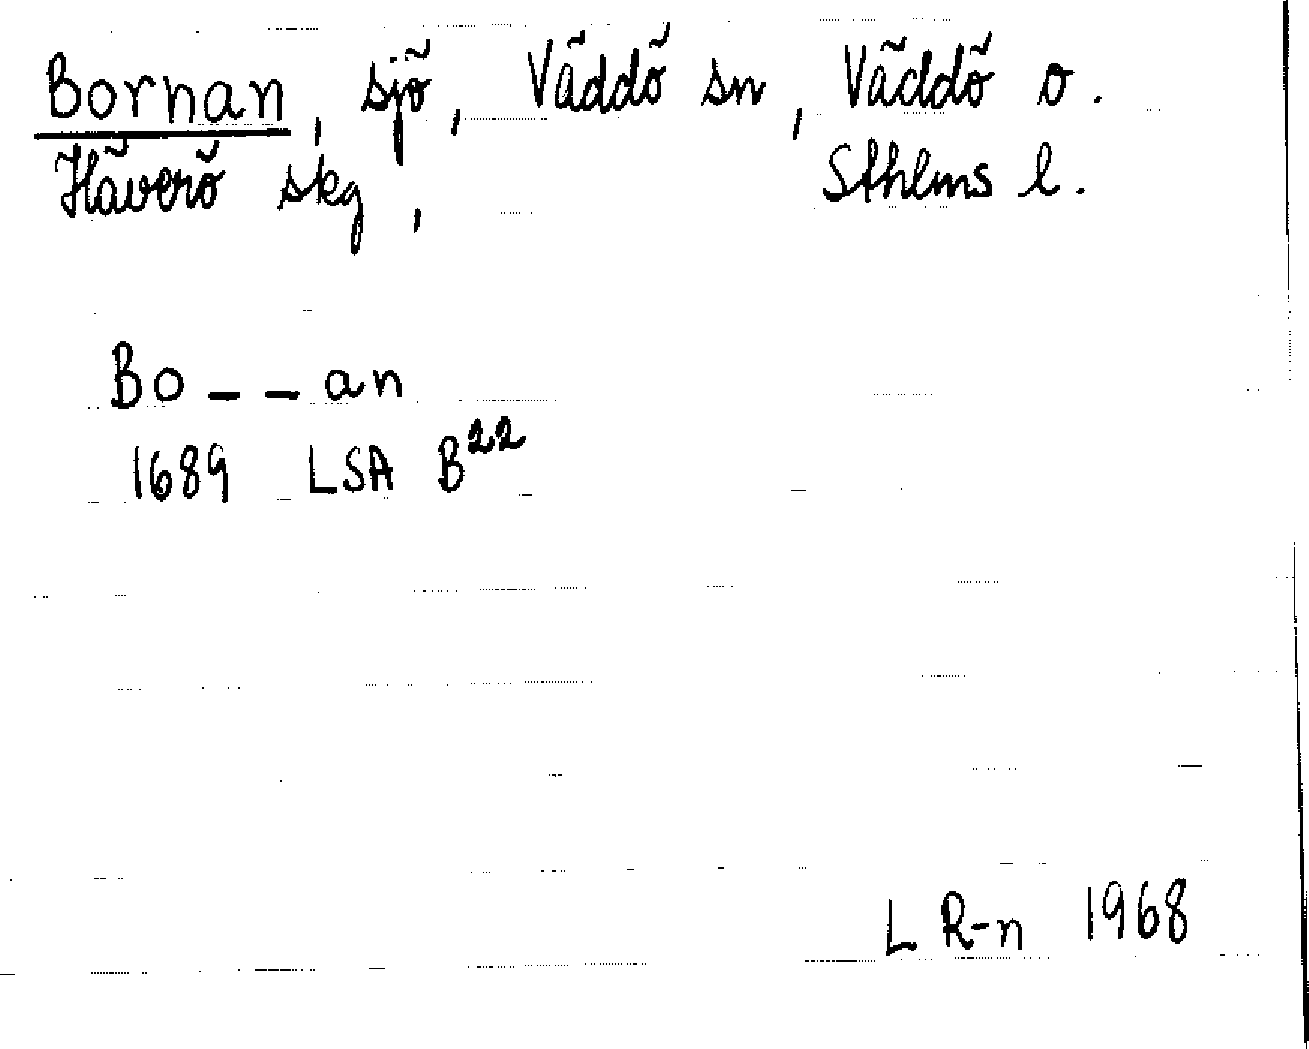 Bornan, sjö, Väddö sn, Väddö o.
Häverö skg, Sthlms l.
Bo _ _ an
1689 LSA B²²
L R-n 1968